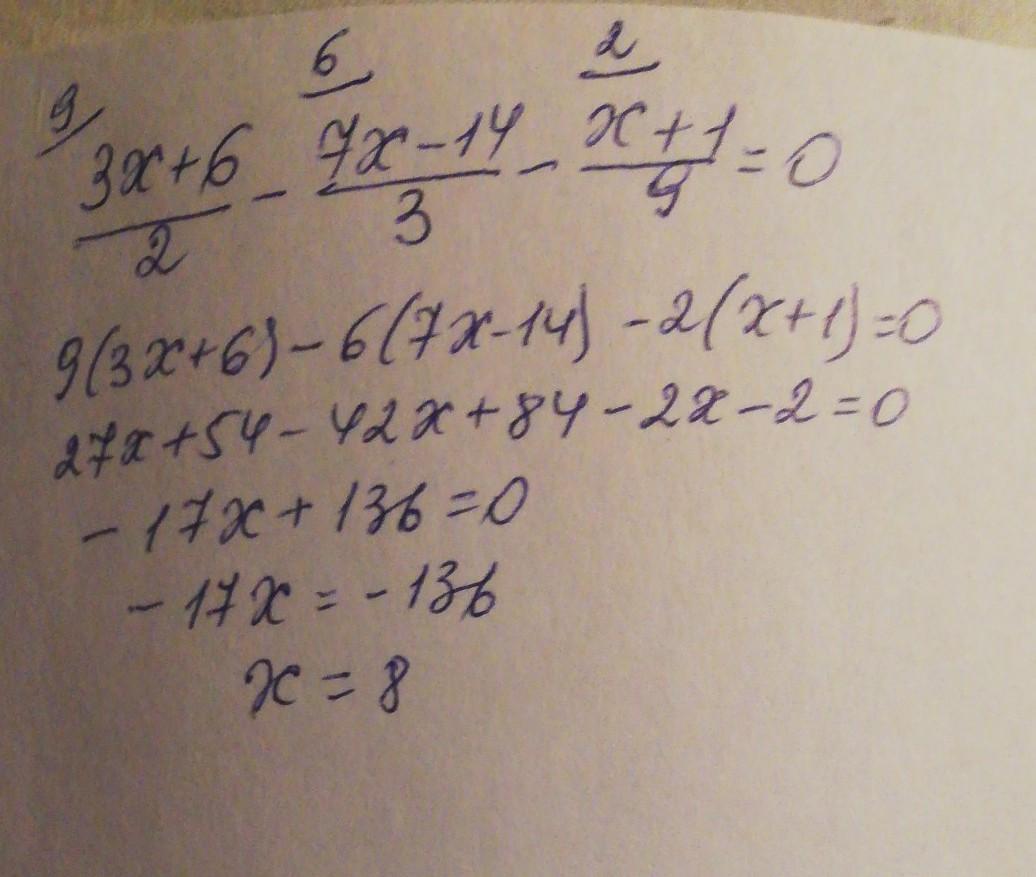 9/ 6/ 2/
(3x+6)/2 - (7x-14)/3 - (x+1)/9 = 0
9(3x+6) - 6(7x-14) - 2(x+1) = 0
27x+54-42x+84-2x-2=0
-17x+136=0
-17x=-136
x=8